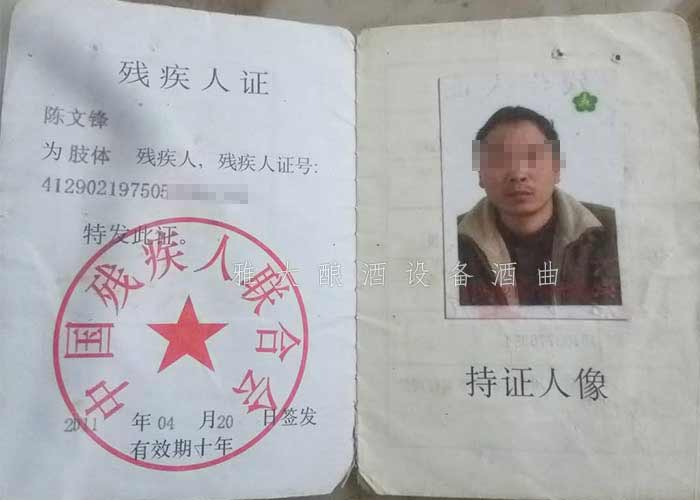 残疾人证
陈文锋
为 肢体 残疾人，残疾人证号：
412902197505
特发此证。
中国残疾人联合会
2011 年 04 月 20 日签发
有效期十年
雅大酿酒设备酒曲
持证人像